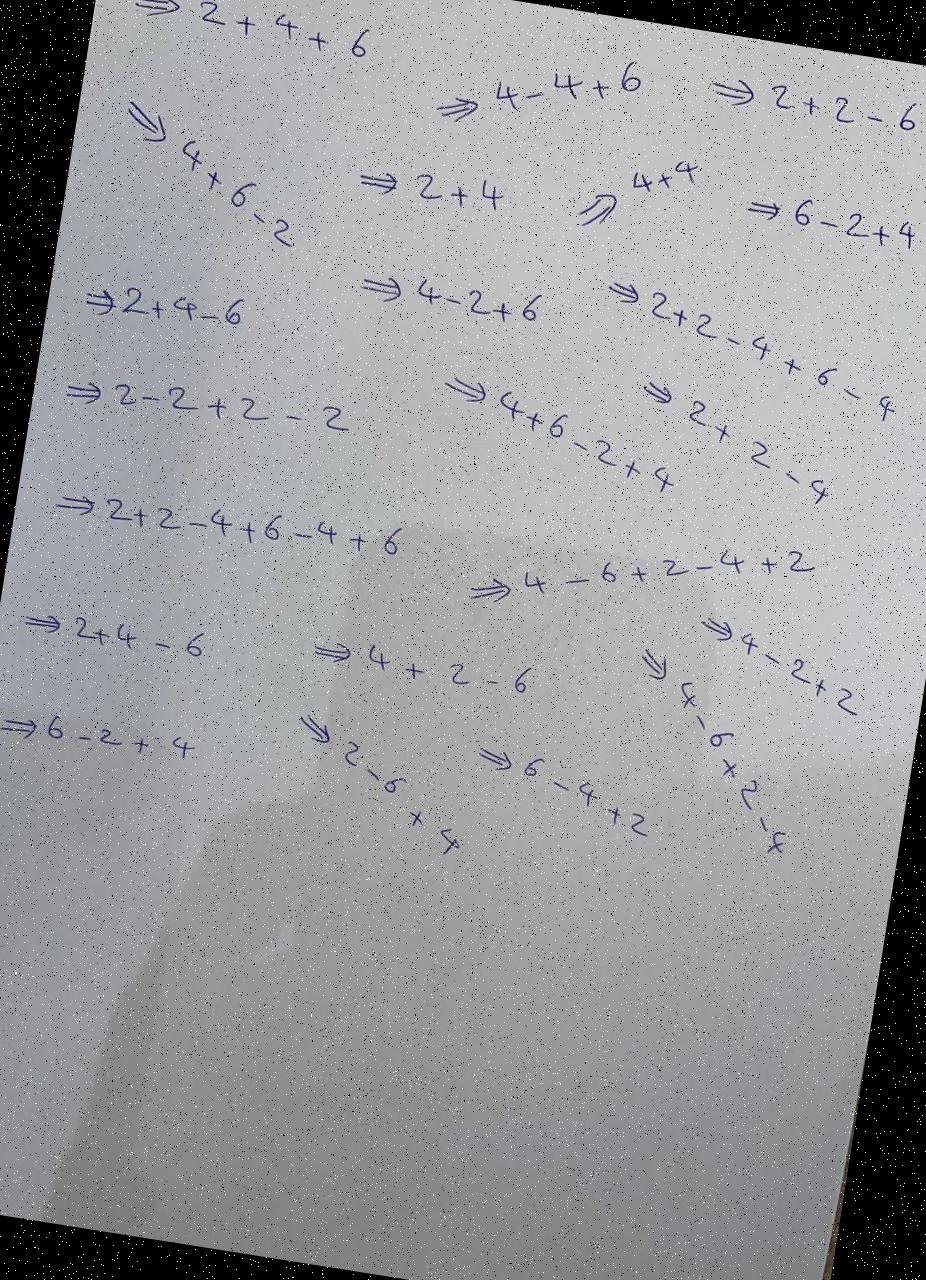 ⇒ 2 + 4 + 6
⇒ 4 - 4 + 6
⇒ 2 + 2 - 6
⇒ 4 + 6 - 2
⇒ 2 + 4
⇒ 4 + 4
⇒ 6 - 2 + 4
⇒ 2 + 4 - 6
⇒ 4 - 2 + 6
⇒ 2 + 2 - 4 + 6 - 4
⇒ 2 - 2 + 2 - 2
⇒ 4 + 6 - 2 + 4
⇒ 2 + 2 - 4
⇒ 2 + 2 - 4 + 6 - 4 + 6
⇒ 4 - 6 + 2 - 4 + 2
⇒ 2 + 4 - 6
⇒ 4 + 2 - 6
⇒ 4 - 6 + 2 - 4
⇒ 4 - 2 + 2
⇒ 6 - 2 + 4
⇒ 2 - 6 + 4
⇒ 6 - 4 + 2